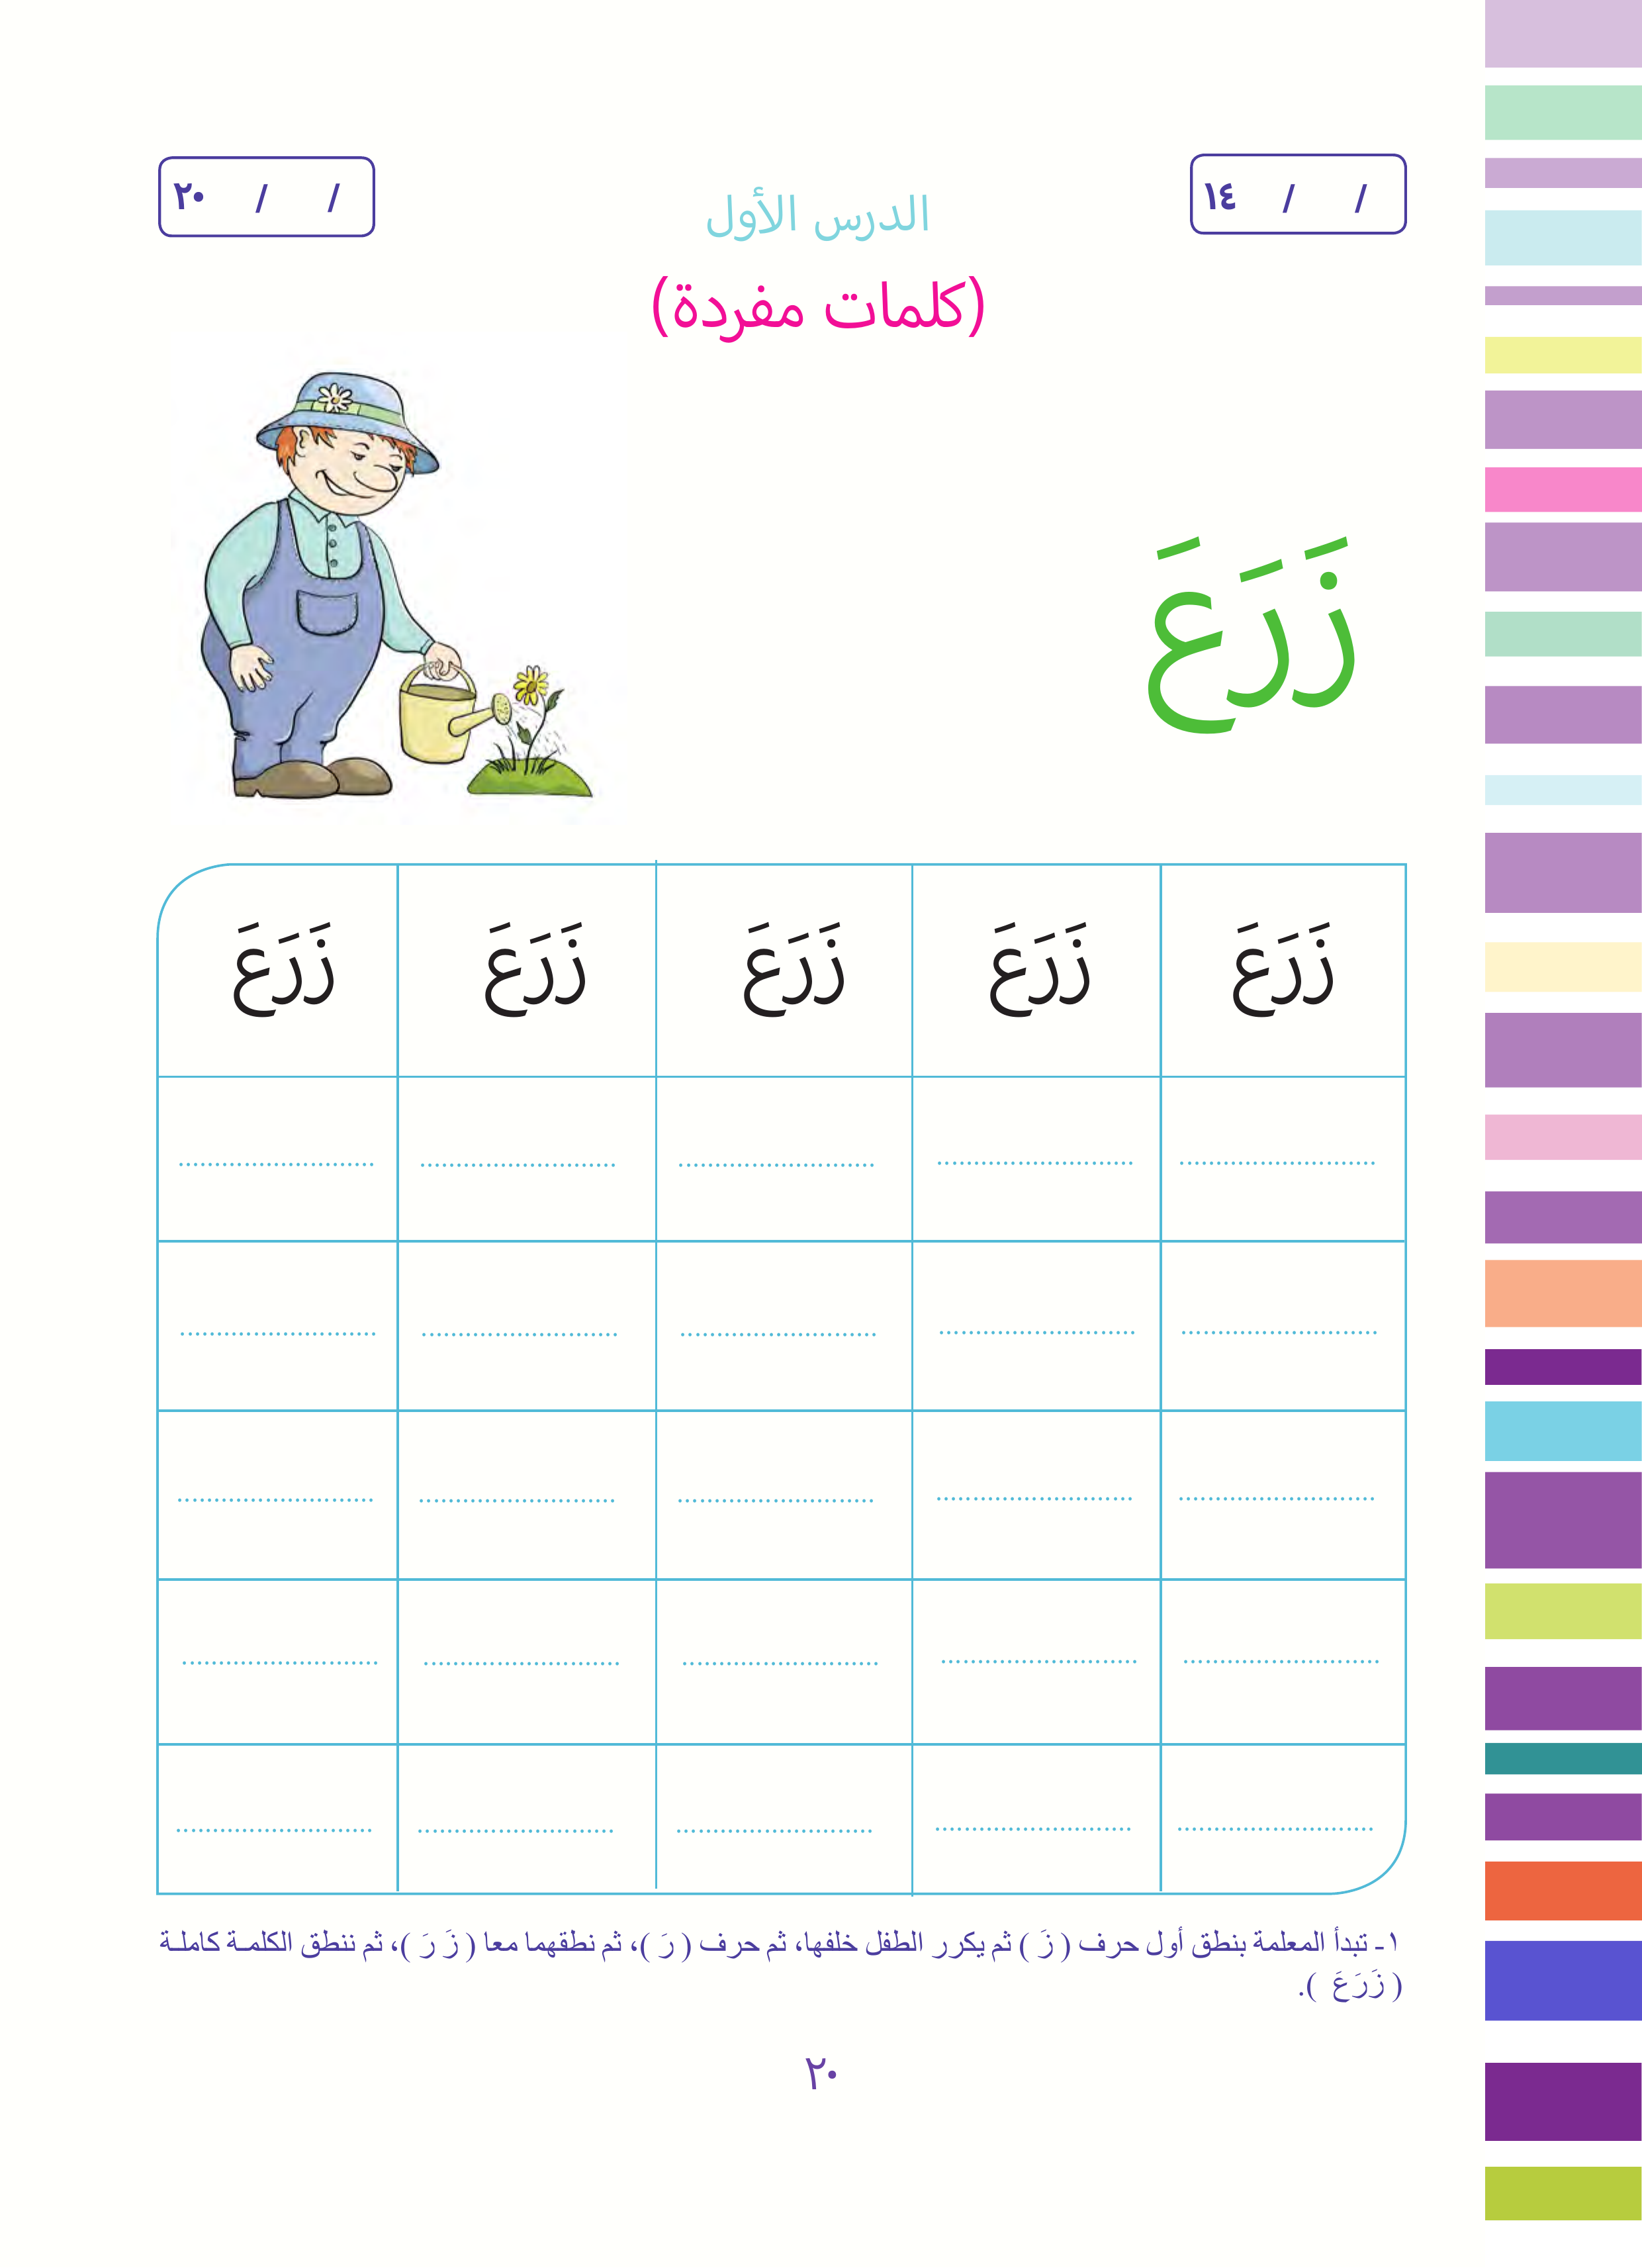 / / ١٤
الدرس الأول
/ / ٢٠
(كلمات مفردة)
زَرَعَ
زَرَعَ زَرَعَ زَرَعَ زَرَعَ زَرَعَ
١- تبدأ المعلمة بنطق أول حرف ( زَ ) ثم يكرر الطفل خلفها، ثم حرف ( رَ )، ثم نطقهما معا ( زَ رَ )، ثم ننطق الكلمـة كاملـة
( زَرَعَ ).
٢٠